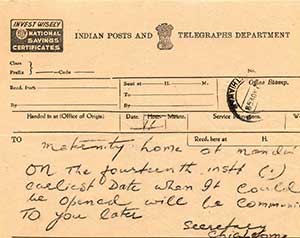 INVEST WISELY
NATIONAL
SAVINGS
CERTIFICATES
INDIAN POSTS AND TELEGRAPHS DEPARTMENT
Class
Prefix Code
Recd. From
By
Sent at H. M.
To
By
Office Stamp.
Handed in at (Office of Origin) Date. Hour. Minute. Service Instructions. Words.
TO
Recd. here at H.
Maternity home at
ON The fourteenth inst (.)
earliest Date when It could
be opened will be
TO you later
Secretary